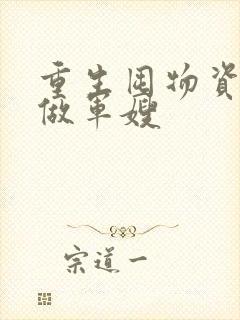 重生囤物资
做军嫂
宗道一